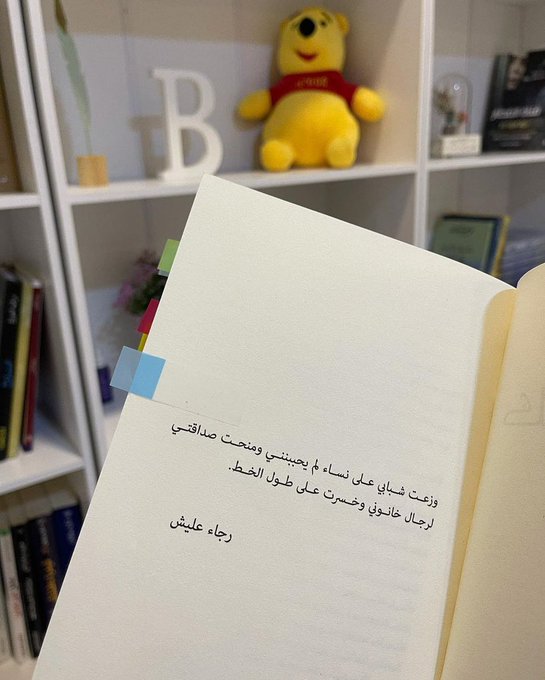 B
وزعت شبابي على نساء لم يحببنني ومنحت صداقتي
لرجال خانوني وخسرت على طول الخط.
رجاء عليش